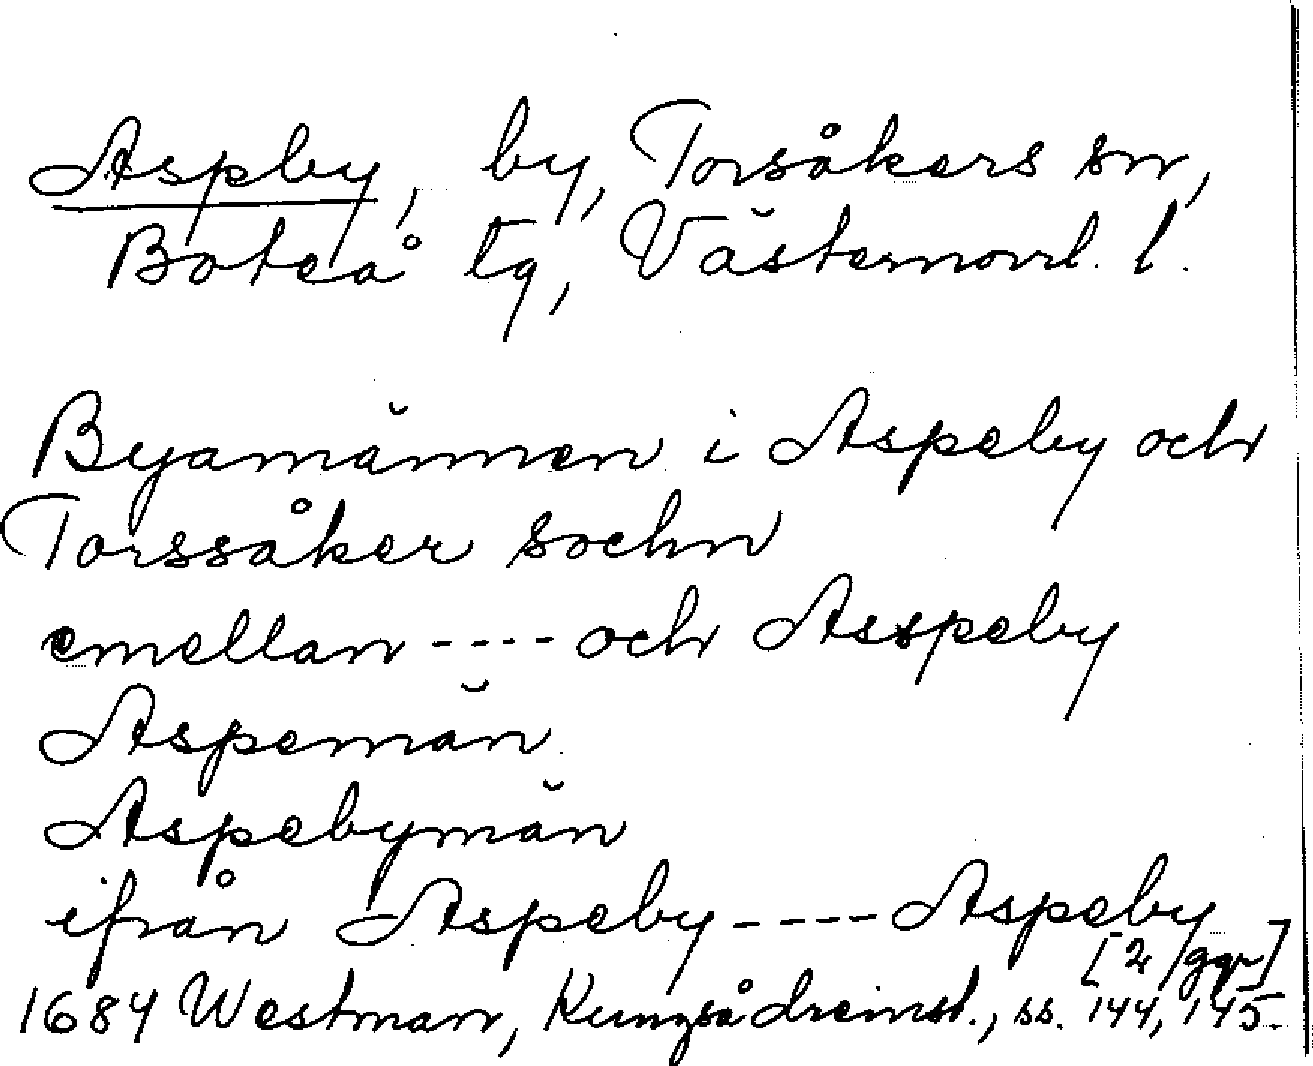 Aspby, by, Torsåkers sn,
Boteå tg, Västernorrl. l.
Byamännen i Aspeby och
Torssåker sochn
emellan ---- och Asspeby
Aspemän
Aspebymän
ifrån Aspeby ---- Aspeby
[2 ggr]
1684 Westman, Kungsådreinst., ss. 144, 145.